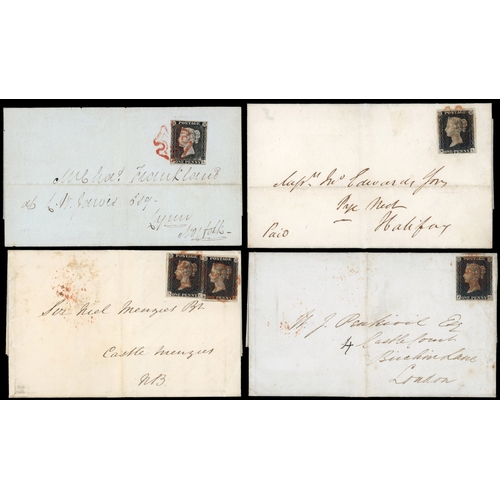 POSTAGE
ONE PENNY
at C. W. Lewis Esq
Lynn
Norfolk
POSTAGE
ONE PENNY
Edwards, Son
Pye Nest
Halifax
Paid
POSTAGE POSTAGE
ONE PENNY ONE PENNY
Sir Niel Menzies Bt
Castle Menzies
NB
POSTAGE
ONE PENNY
W. J. Esq
4 Castle Court
Birchin Lane
London